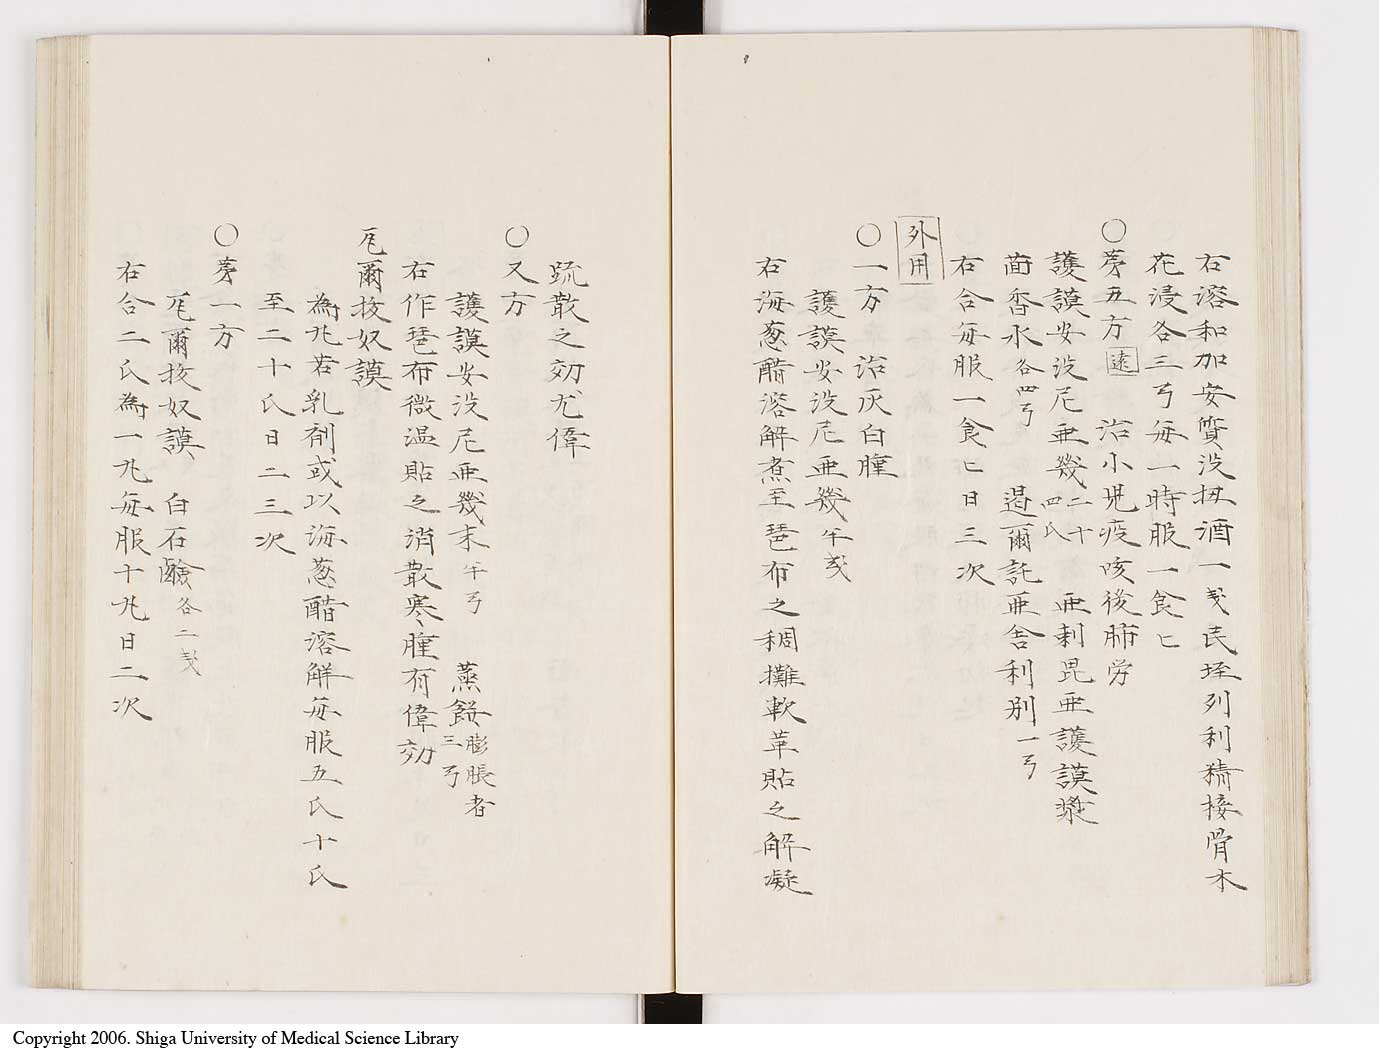 右溶和加安質没扭酒一戔芪垤列利精接骨木
花浸各三弓毎一時服一食匕
〇第五方 遠 治小児疫咳後肺労
護謨安没尼亜幾二十四氏 亜刺毘亜護謨漿
茴香水各四弓 遏爾託亜舎利別一弓
右合毎服一食匕日三次
外用
〇一方 治灰白腫
護謨安没尼亜幾半戔
右海葱醋溶解煮至琶布之稠攤軟革貼之解凝
疏散之効尤偉
〇又方
護謨安没尼亜幾末半弓 蒸餅膨脹者三弓
右作琶布微温貼之消散寒腫有偉効
尾爾抜奴謨
為丸若乳剤或以海葱醋溶解毎服五氏十氏
至二十氏日二三次
〇第一方
尾爾抜奴謨 白石鹸各二戔
右合二氏為一丸毎服十丸日二次
Copyright 2006. Shiga University of Medical Science Library